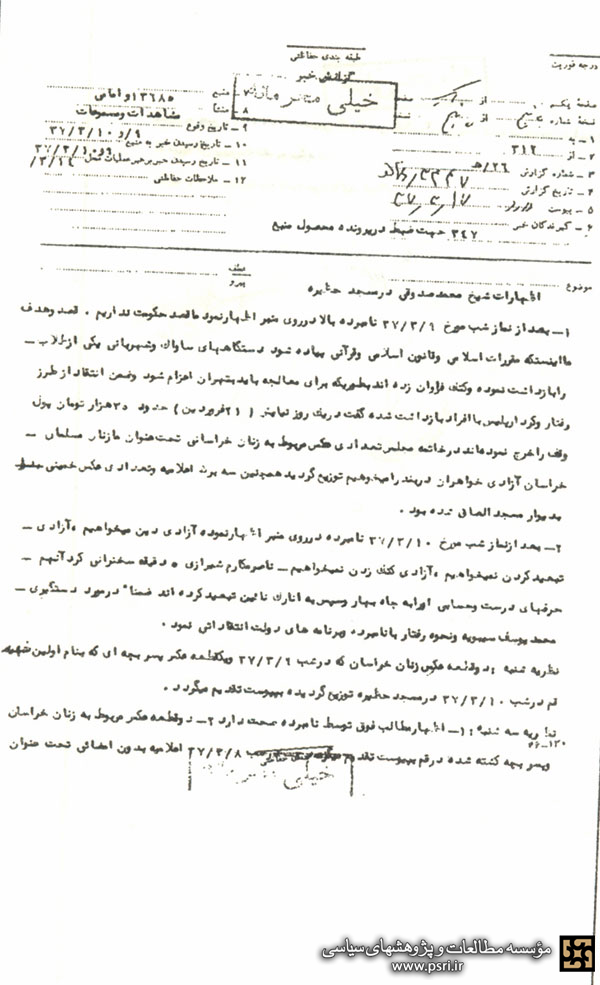 طبقه بندی حفاظتی
درجه فوریت
گزارش خبر
خیلی محرمانه
صفحه یک از
نسخه شماره از
۱ـ به
۲ـ از ۳۱۲
۳ـ شماره گزارش ۲۶/ه
۴ـ تاریخ گزارش
۵ـ پیوست دارد
۶ـ گیرندگان خبر ۳۴۷ جهت ضبط در پرونده محصول منبع
۷ـ منبع ۱۳۶۸۵ و امامی
۸ـ منشأ مشاهدات و مسموعات
۹ـ تاریخ وقوع ۹و۳۷/۳/۱۰
۱۰ـ تاریخ رسیدن خبر به منبع ۹و۳۷/۳/۱۰
۱۱ـ تاریخ رسیدن خبر به رهبر عملیات محل
۱۲ـ ملاحظات حفاظتی
موضوع اظهارات شیخ محمد صدوقی در مسجد حظیره
عطف
پیرو
۱ـ بعد از نماز شب مورخ ۳۷/۳/۹ نامبرده بالا در روی منبر اظهار نمود ما قصد حکومت نداریم . قصد و هدف
ما اینستکه مقررات اسلامی و قانون اسلامی و قرآنی پیاده شود دستگاههای ساواک و شهربانی یکی از طلاب ـ
را بازداشت نموده و کتک فراوان زده اند بطوریکه برای معالجه باید بتهران اعزام شود وضمن انتقاد از طرز
رفتار و کردار پلیس با افراد بازداشت شده گفت در یک روز نمایش (۲۱ فروردین) حدود ۳۵ هزار تومان پول
وقف را خرج نموده اند در خاتمه مجلس تعدادی عکس مربوط به زنان خراسانی تحت عنوان ما زنان مسلمان ـ
خراسان آزادی خواهران دربند را میخواهیم توزیع گردید همچنین سه برگ اعلامیه و تعدادی عکس خمینی
به دیوار مسجد الصاق شده بود .
۲ـ بعد از نماز شب مورخ ۳۷/۳/۱۰ نامبرده در روی منبر اظهار نمود ه آزادی دین میخواهیم ه آزادی ـ
تبعید کردن نمیخواهیم ه آزادی کتک زدن نمیخواهیم ـ ناصر مکارم شیرازی ۵ دقیقه سخنرانی کرد آنهم ـ
حرفهای درست و حسابی او را به چاه بهار و سپس به انارک نائین تبعید کرده اند ضمنا" در مورد دستگیری ـ
محمد یوسف سیبویه و نحوه رفتار با نامبرده و برنامه های دولت انتقاداتی نمود .
نظریه شنبه : دو قطعه عکس زنان خراسان که در شب ۳۷/۳/۹ و یکقطعه عکس پسر بچه ای که بنام اولین شهید
قم در شب ۳۷/۳/۱۰ در مسجد حظیره توزیع گردیده به پیوست تقدیم میگردد .
نظریه سه شنبه : ۱ـ اظهار مطالب فوق توسط نامبرده صحت دارد ۲ـ دو قطعه عکس مربوط به زنان خراسان
۵۶ـ۱۳۰
و پسر بچه کشته شده در قم به پیوست تقدیم شب ۳۷/۳/۸ اعلامیه بدون امضائی تحت عنوان
خیلی محرمانه
مؤسسه مطالعات و پژوهشهای سیاسی
www.psri.ir